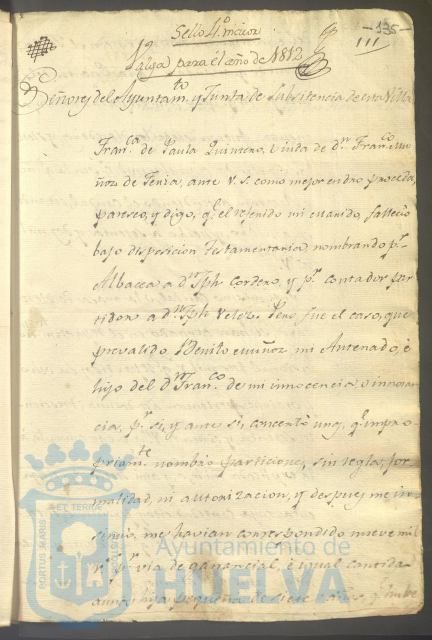 -135-
Sello 4º. mayor
111
Valga para el año de 1812
Señores del Ayuntam.to y Junta de Subsistencia de esta Villa
Fran.ca de Paula Quintero, Viuda de d.n Fran.co Mu
ñoz de Feria, ante V. S. como mejor en dro proceda,
parezco, y digo, q.e el referido mi marido, fallecio
bajo disposicion Testamentaria nombrando p.r
Albacea a d.n Jph Cordero, y p.r contador par
tidor a d.n Jph Velez. Pero fue el caso, que
prevalido Benito Muñoz mi Antenado, è
hijo del d.n Fran.co de mi innocencia è ignoran
cia, p.r si, y ante si, concertò unas, q.e impro
priam.te nombrò particiones, sin regla, for
malidad, ni autorizacion, y despues me in
sinuò, me havian correspondido nueve mil
r.s p.r via de ganancial, è igual cantidad
a una hija pequeña de siete años, q.e hube
PORTUS MARIS ET TERRAE CUSTODIA
Ayuntamiento de
HUELVA